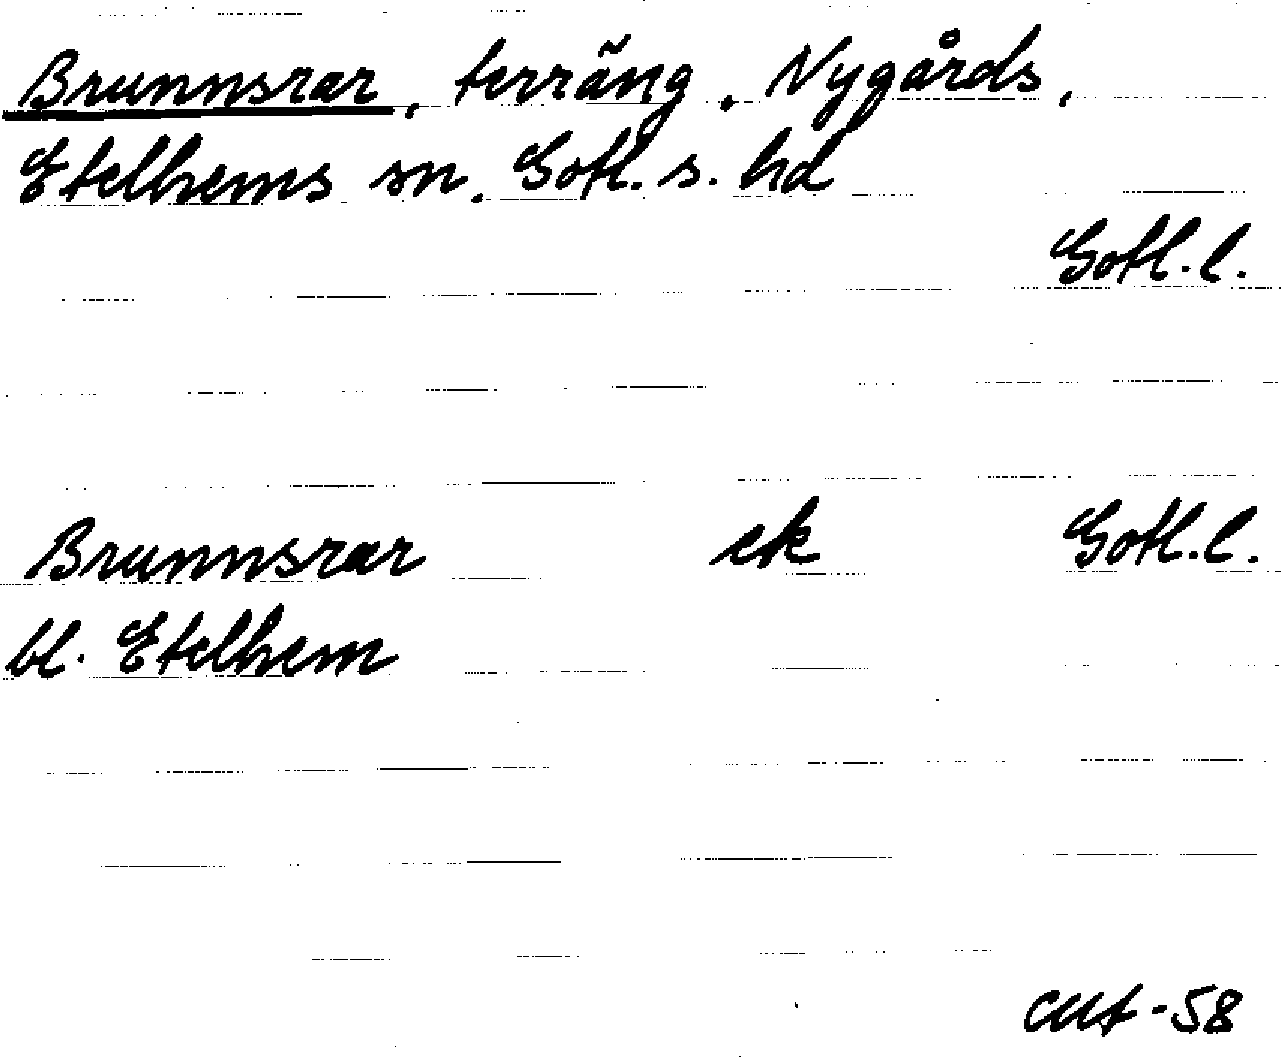 Brunnsrar, terräng, Nygårds,
Etelhems sn. Gotl. s. hd
Gotl. l.
Brunnsrar ek Gotl. l.
bl. Etelhem
-58